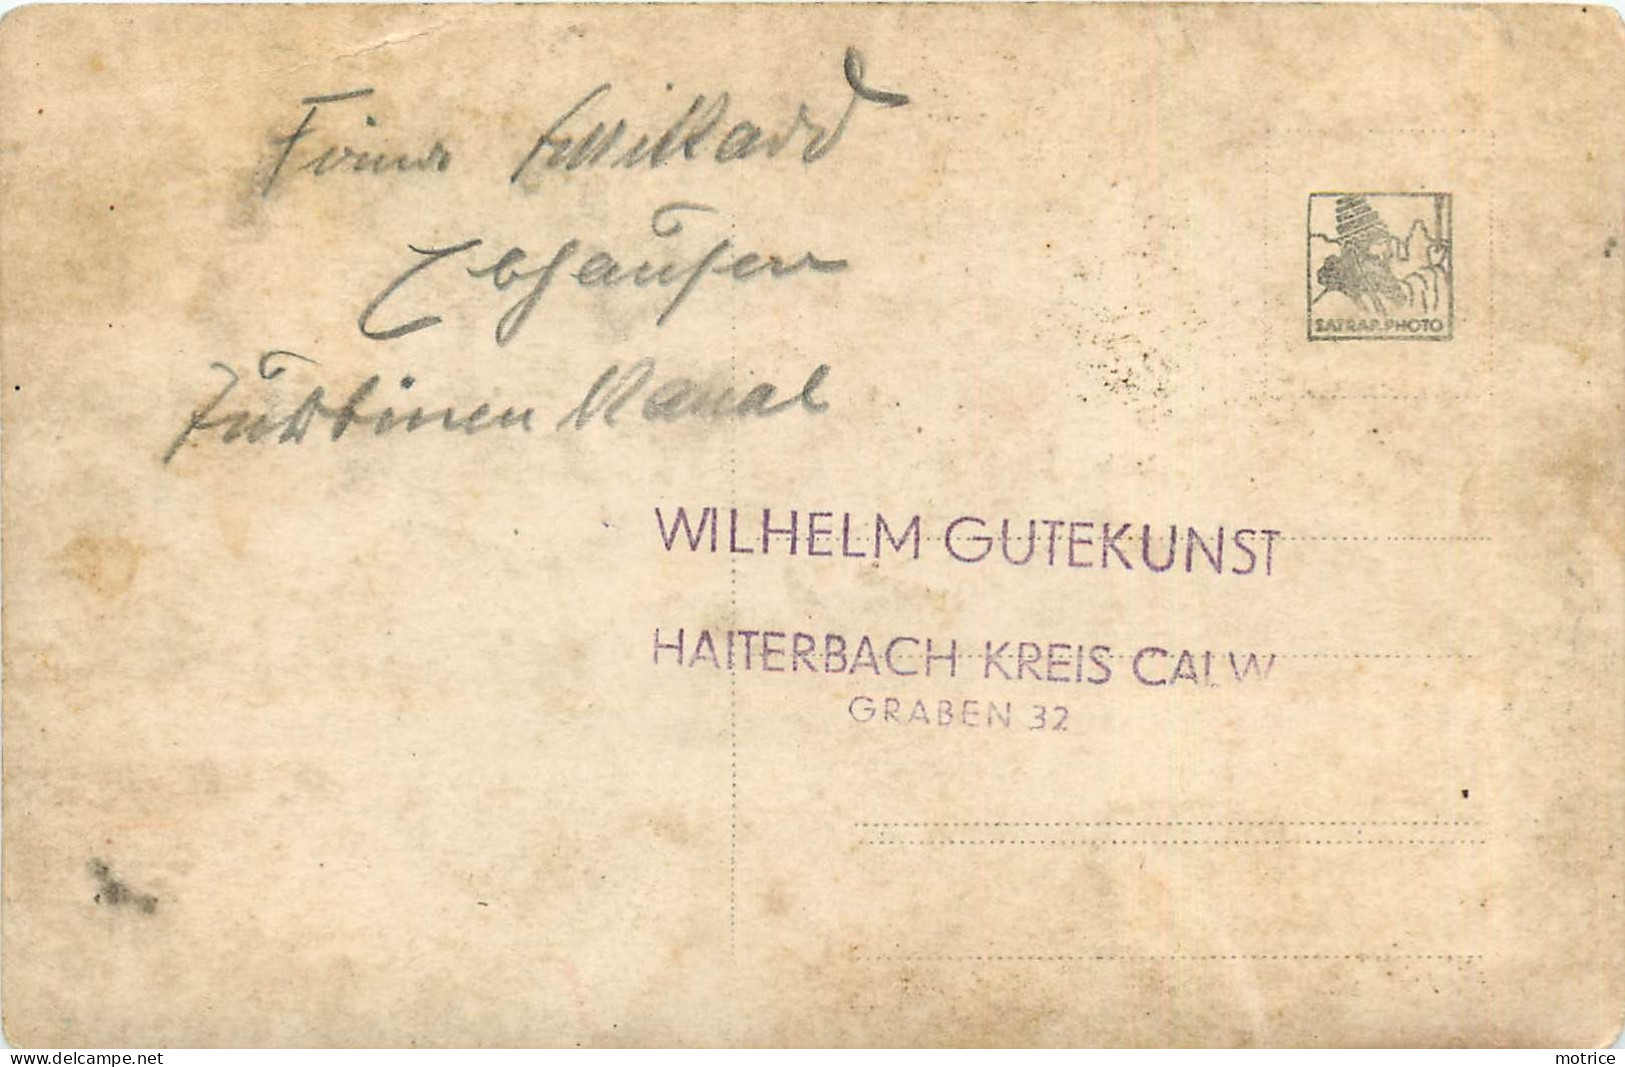 Firma
Ebhausen
Turbinen Kanal
SATRAP. PHOTO
WILHELM GUTEKUNST
HAITERBACH KREIS CALW
GRABEN 32
delcampe.net
motrice